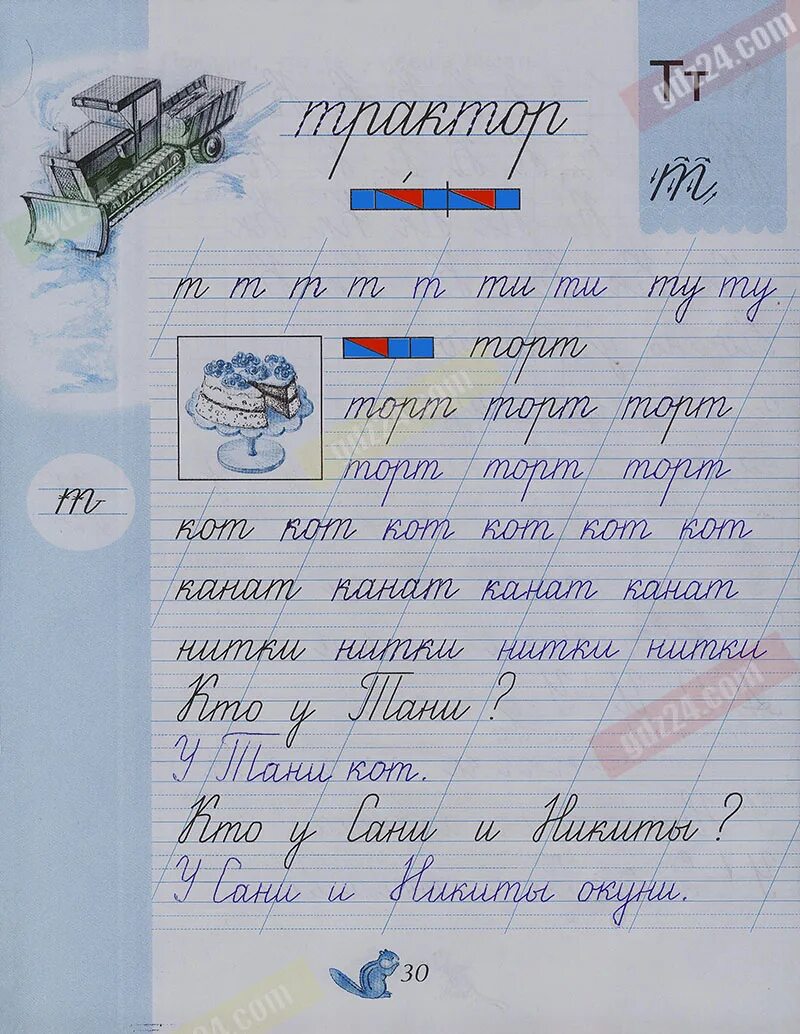 Тт
трактор
т
т т т т т ти ти ту ту
торт
торт торт торт
торт торт торт
т
кот кот кот кот кот кот
канат канат канат канат
нитки нитки нитки нитки
Кто у Тани ?
У Тани кот.
Кто у Сани и Никиты ?
У Сани и Никиты окуни.
30
gdz24.com
gdz24.com
gdz24.com
gdz24.com
gdz24.com